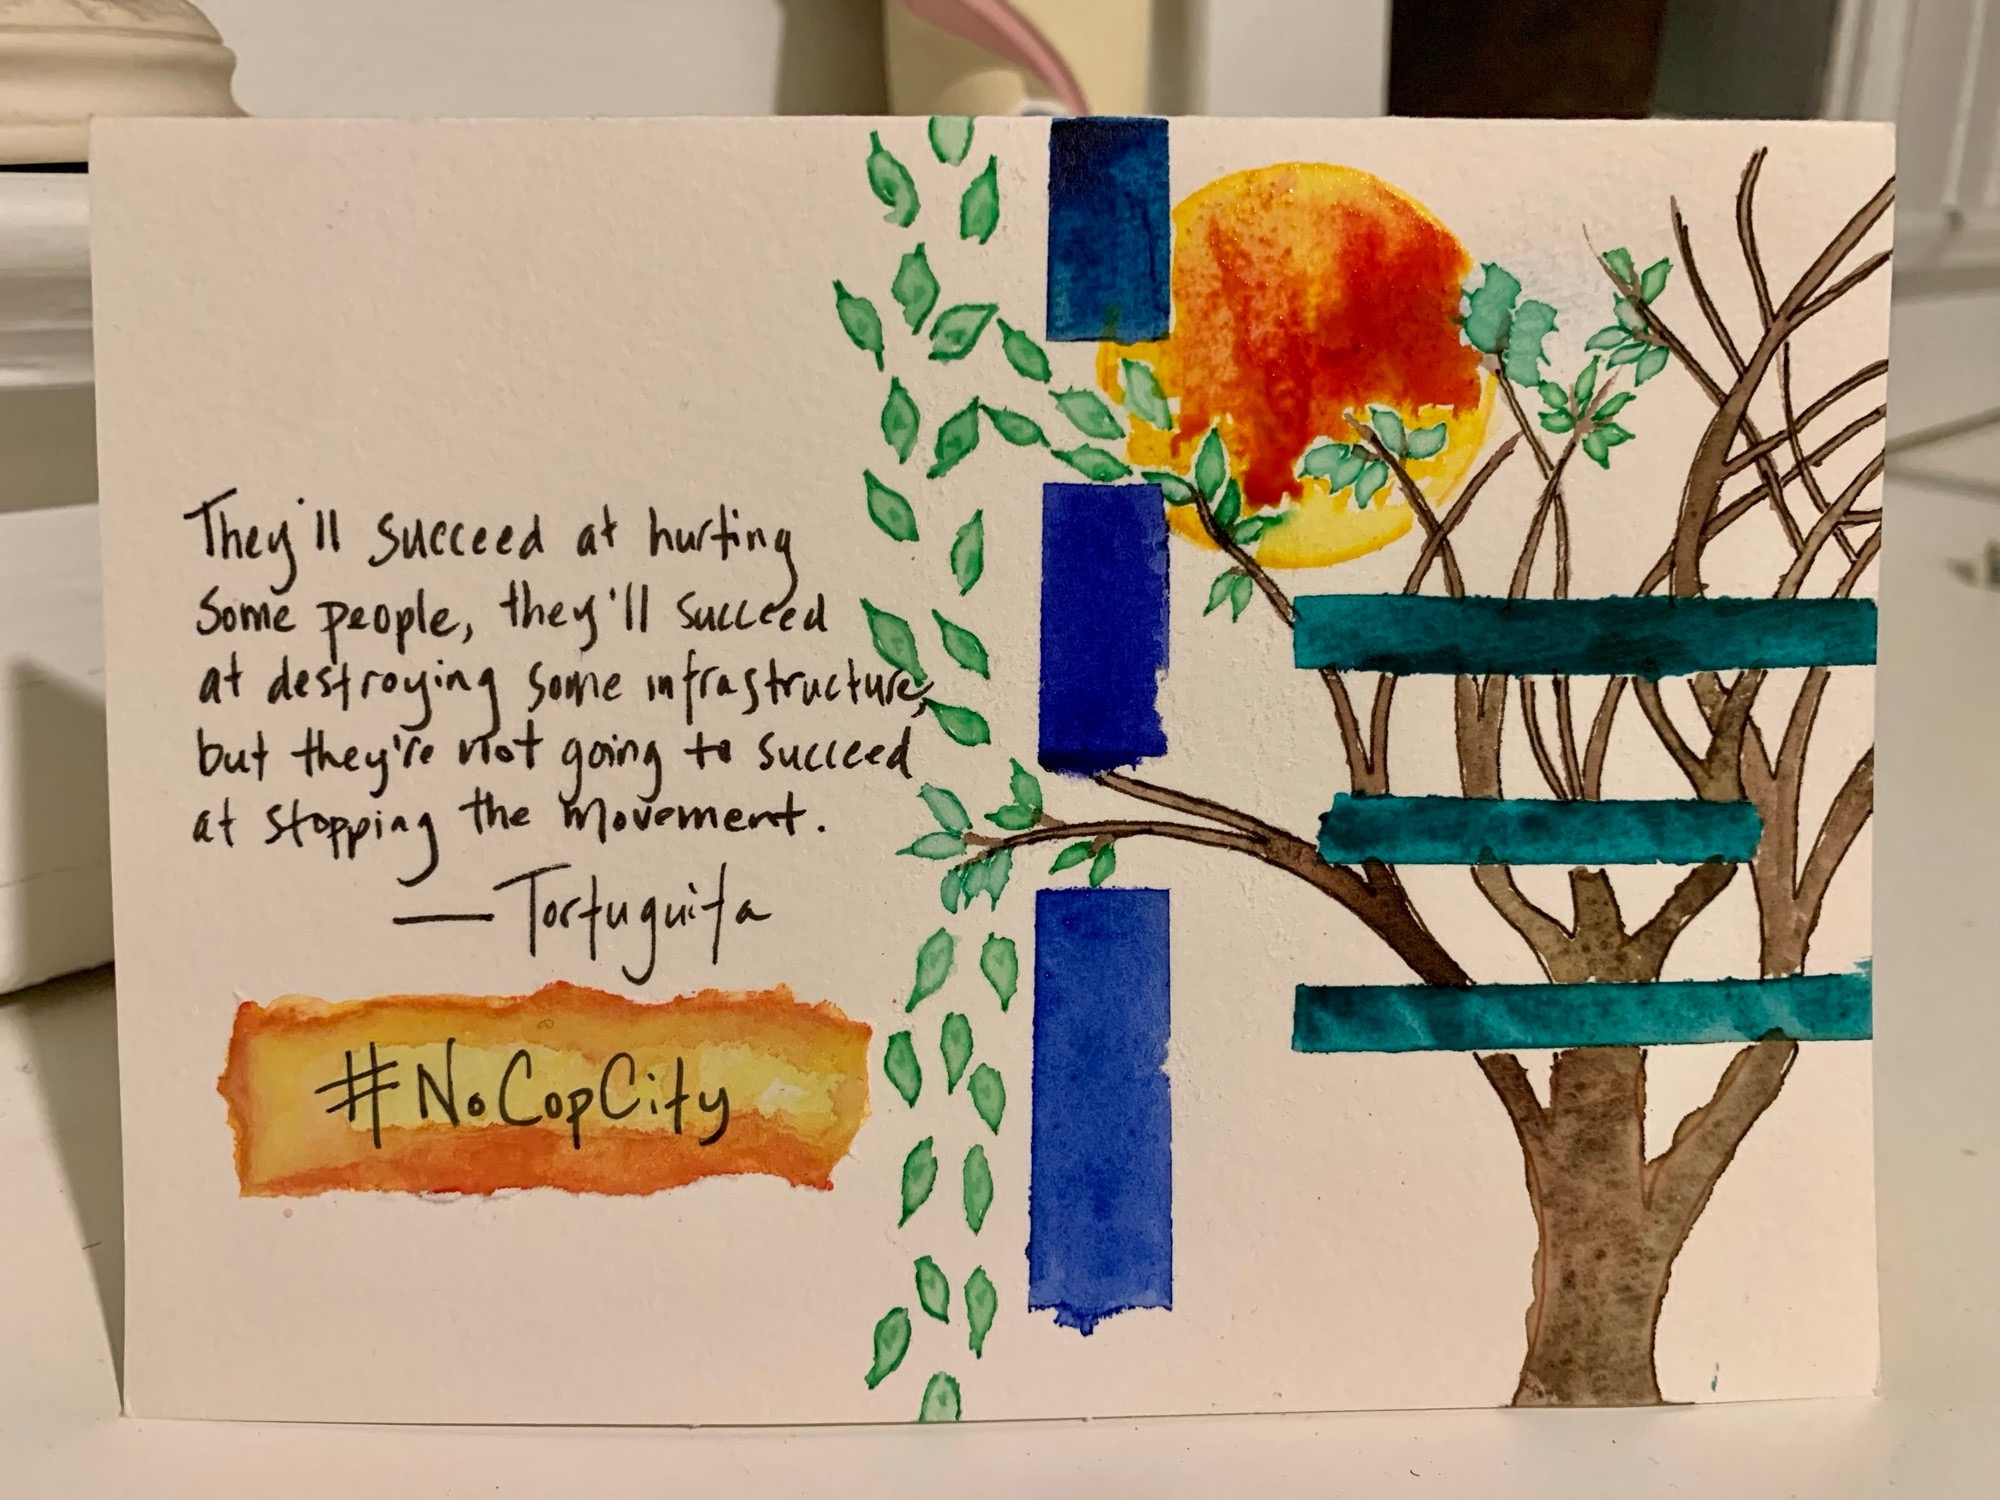 They'll succeed at hurting
some people, they'll succeed
at destroying some infrastructure,
but they're not going to succeed
at stopping the movement.
— Tortuguita
#NoCopCity